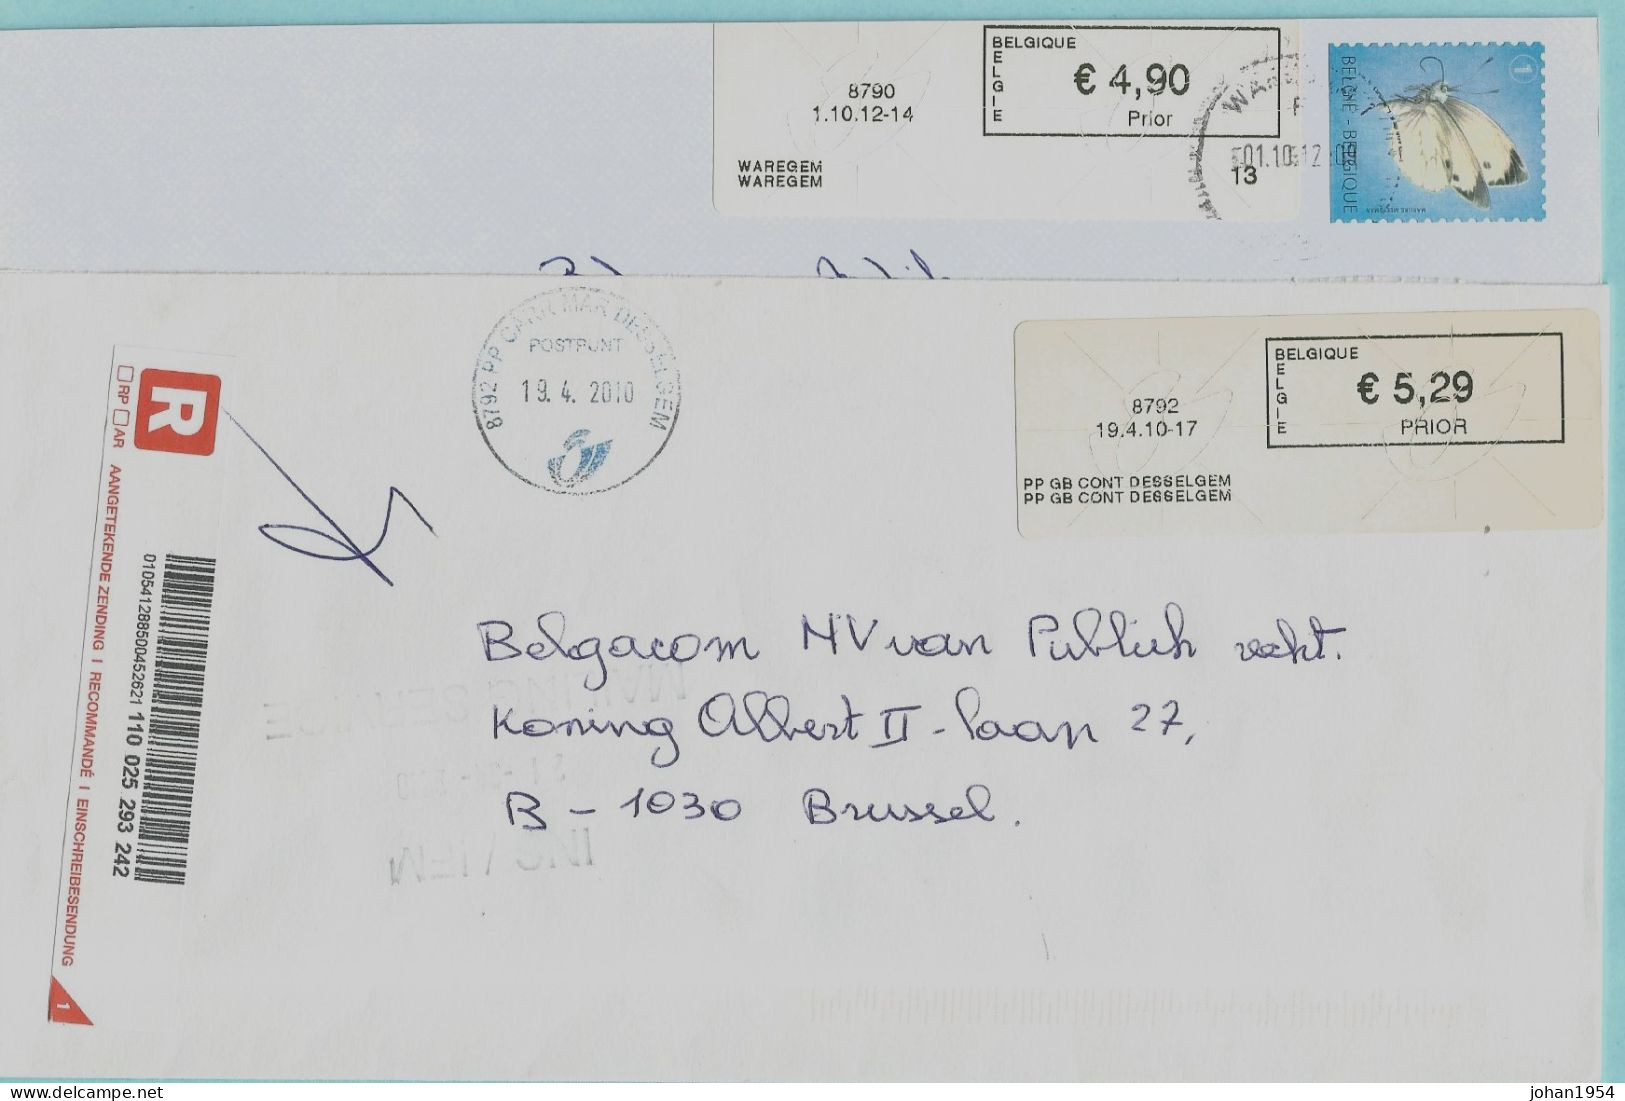 BELGIQUE
BELGIE
€ 4,90
Prior
8790
1.10.12-14
WAREGEM
WAREGEM
13
01.10.12
1
BELGIË - BELGIQUE
8792 PP CARR MAR DESSELGEM
POSTPUNT
19. 4. 2010
BELGIQUE
BELGIE
€ 5,29
PRIOR
8792
19.4.10-17
PP GB CONT DESSELGEM
PP GB CONT DESSELGEM
R
RP AR
AANGETEKENDE ZENDING I RECOMMANDÉ I EINSCHREIBESENDUNG
010541288500452621 110 025 293 242
1
Belgacom NV van Publiek recht.
Koning Albert II-laan 27,
B - 1030 Brussel.
MAILING SERVICE
delcampe.net
johan1954